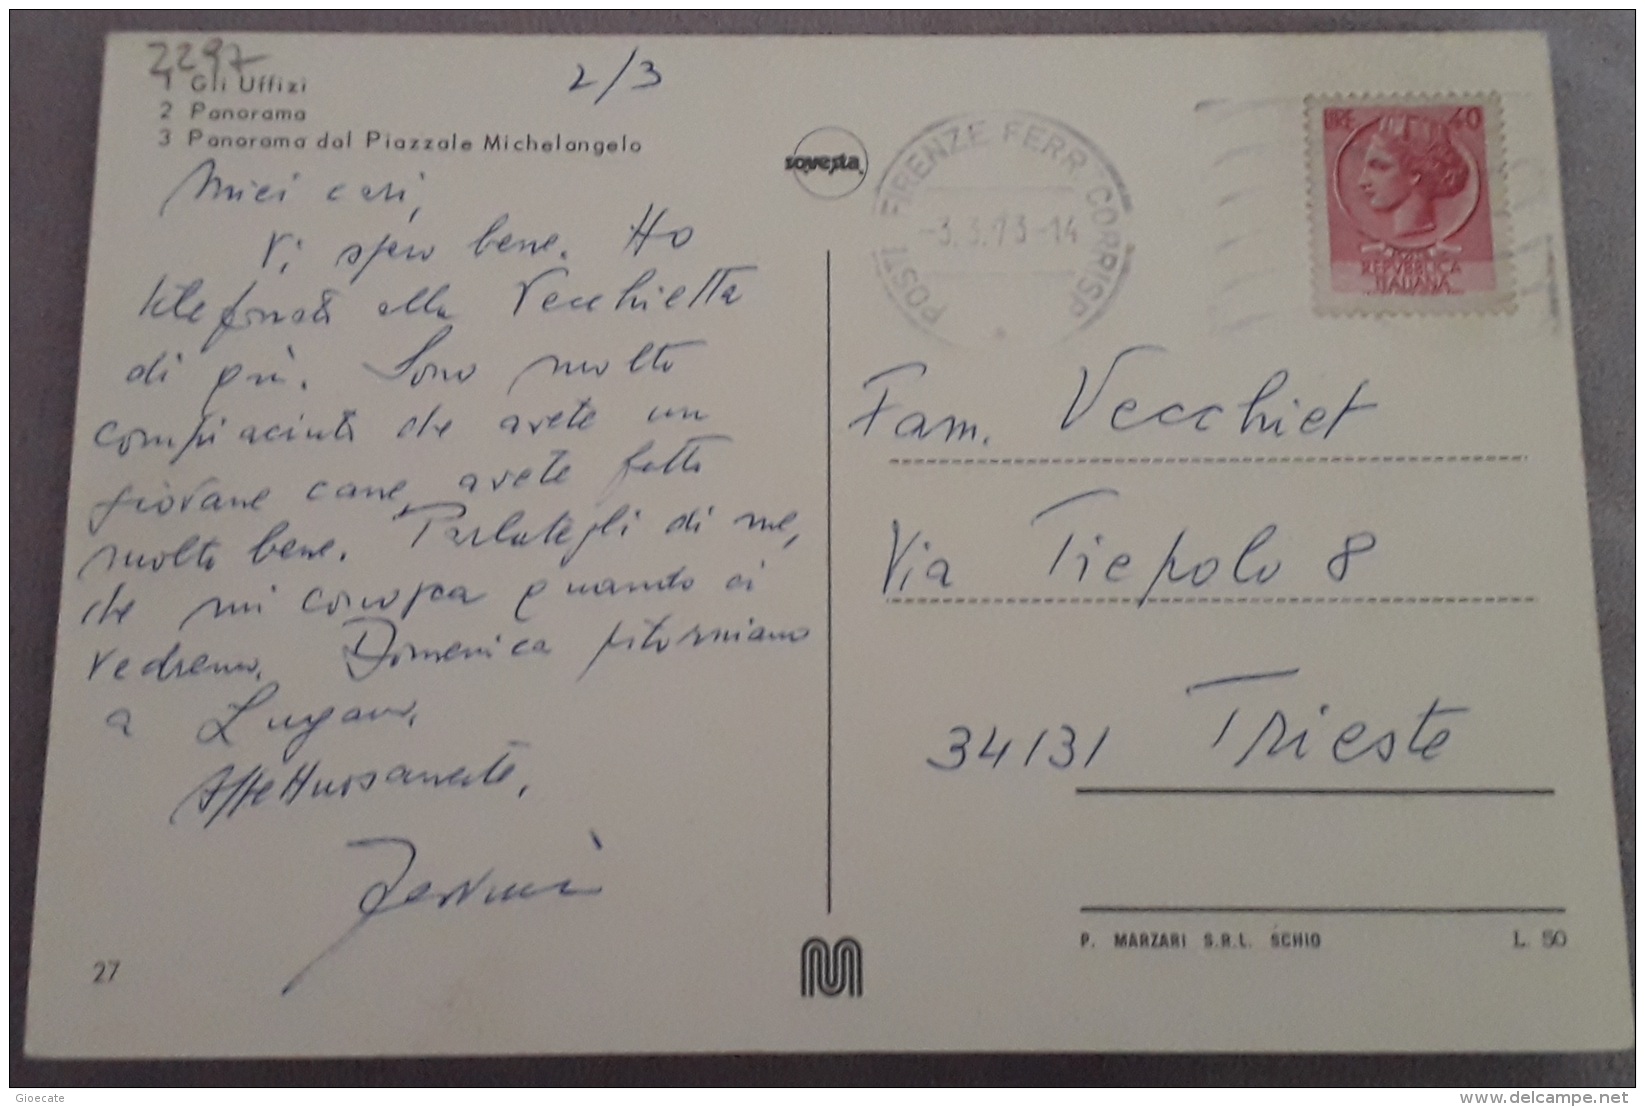 2297
1 Gli Uffizi
2 Panorama
3 Panorama dal Piazzale Michelangelo
2/3
Miei cari,
Vi spero bene. Ho
telefonato alla Vecchietta
di più. Sono molto
compiaciuta che avete un
giovane cane, avete fatto
molto bene. Parlategli di me,
che mi conosca quando ci
vedremo. Domenica ritorniamo
a Lugano.
Affettuosamente,
27
sovesta
POSTE FIRENZE FERR. CORRISP.
-3.3.73-14
LIRE 40
REPVBBLICA
ITALIANA
Fam. Vecchiet
Via Tiepolo 8
34131 Trieste
P. MARZARI S.R.L. SCHIO
L. 50
Gioecate
www.delcampe.net